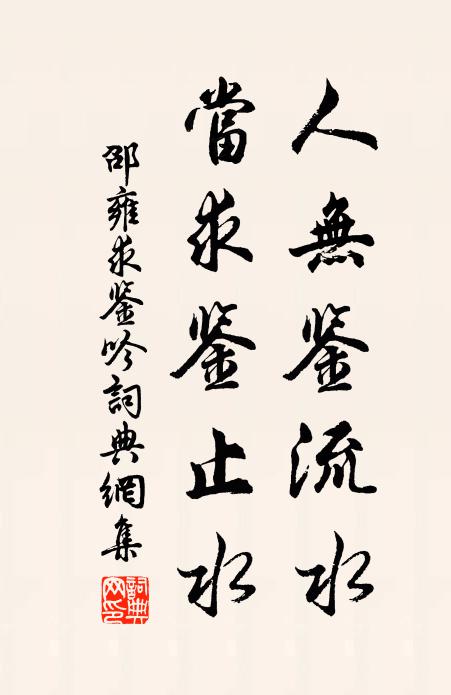 人無鉴流水
當求鉴止水
邵雍求鉴吟詞典網集
詞典
网印